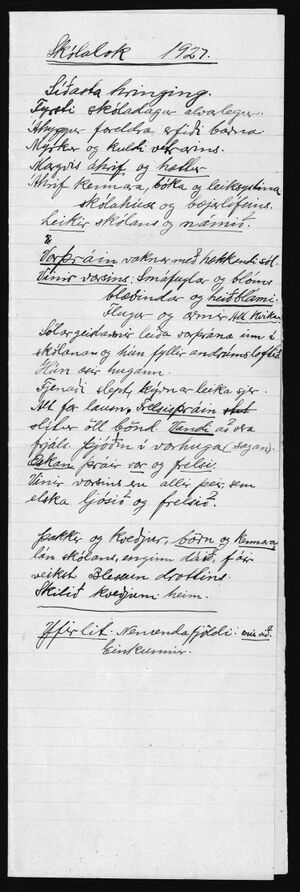 Skólalok 1927.
Síðasta hringing.
Fyrsti skóladagur alvarlegur.
Áhyggjur foreldra, erfiði barna
Myrkur og kuldi vetrarins.
Margvís áhrif og hættur
Áhrif kennara, bóka og leiksystkina
skólahúss og bæjarlífsins.
Leikir skólans og námið.
Vorþráin vaknar með hækkandi sól.
Vinir vorsins: Smáfuglar og blóms
blæðindar og heiðblámi
Flugur og ormar Alt kvikar
Sólargeislarnir leiða vorþrána inn í
skólana og hún fyllir andrúmsloftið
Hún æsir hugann.
Fjenaði slept, kýrnar leika sjer.
Alt for lausn, Frelsisþráin
slítur öll bönd. Vandi að vera
frjáls. Þjóðin í vorhuga (sagan).
Óskan þráir vor og frelsi.
Vinir vorsins eru allir þeir sem
elska ljósið og frelsið.
Þakkir og kveðjur, börn og kennarar
lán skólans, enginn dáið, fáir
veikst Blessun drottins.
Skilið kveðjum heim.
Yfirlit. Nemendafjöldi:
Einkunnir.